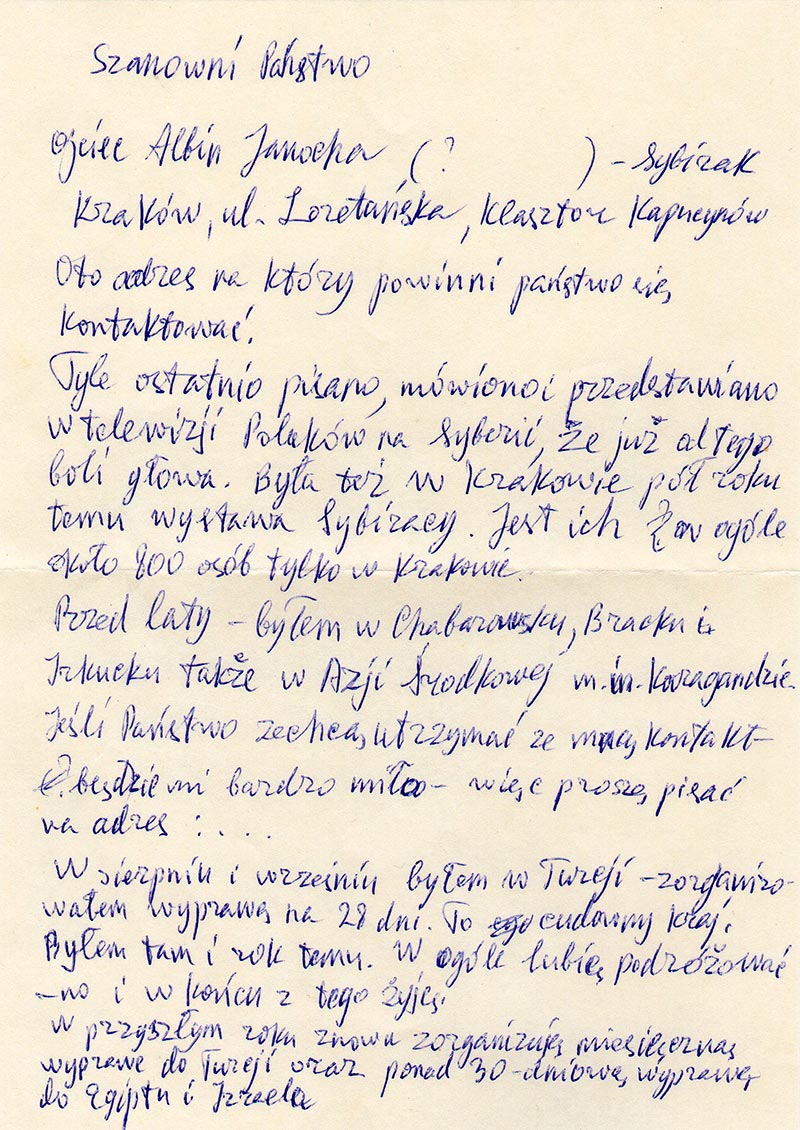 Szanowni Państwo
Ojciec Albin Janocha (? ) - Sybirak
Kraków, ul. Loretańska, Klasztor Kapucynów
Oto adres na który powinni państwo się
kontaktować.
Tyle ostatnio pisano, mówiono i przedstawiano
w telewizji Polaków na Syberii, że już od tego
boli głowa. Była też w Krakowie pół roku
temu wystawa Sybiracy. Jest ich w ogóle
około 800 osób tylko w Krakowie.
Przed laty - byłem w Chabarowsku, Bracku i
Irkucku także w Azji Środkowej m.in. Karagandzie.
Jeśli Państwo zechcą utrzymać ze mną kontakt -
będzie mi bardzo miło - więc proszę pisać
na adres : . . . .
W sierpniu i wrześniu byłem w Turcji - zorganizo-
wałem wyprawę na 28 dni. To cudowny kraj.
Byłem tam i rok temu. W ogóle lubię podróżować
- no i w końcu z tego żyję.
W przyszłym roku znowu zorganizuję miesięczną
wyprawę do Turcji oraz ponad 30-dniową wyprawę
do Egiptu i Izraela